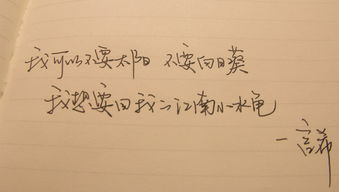 我可以不要太阳 不要向日葵
我想要回我的江南小水龟
—言希